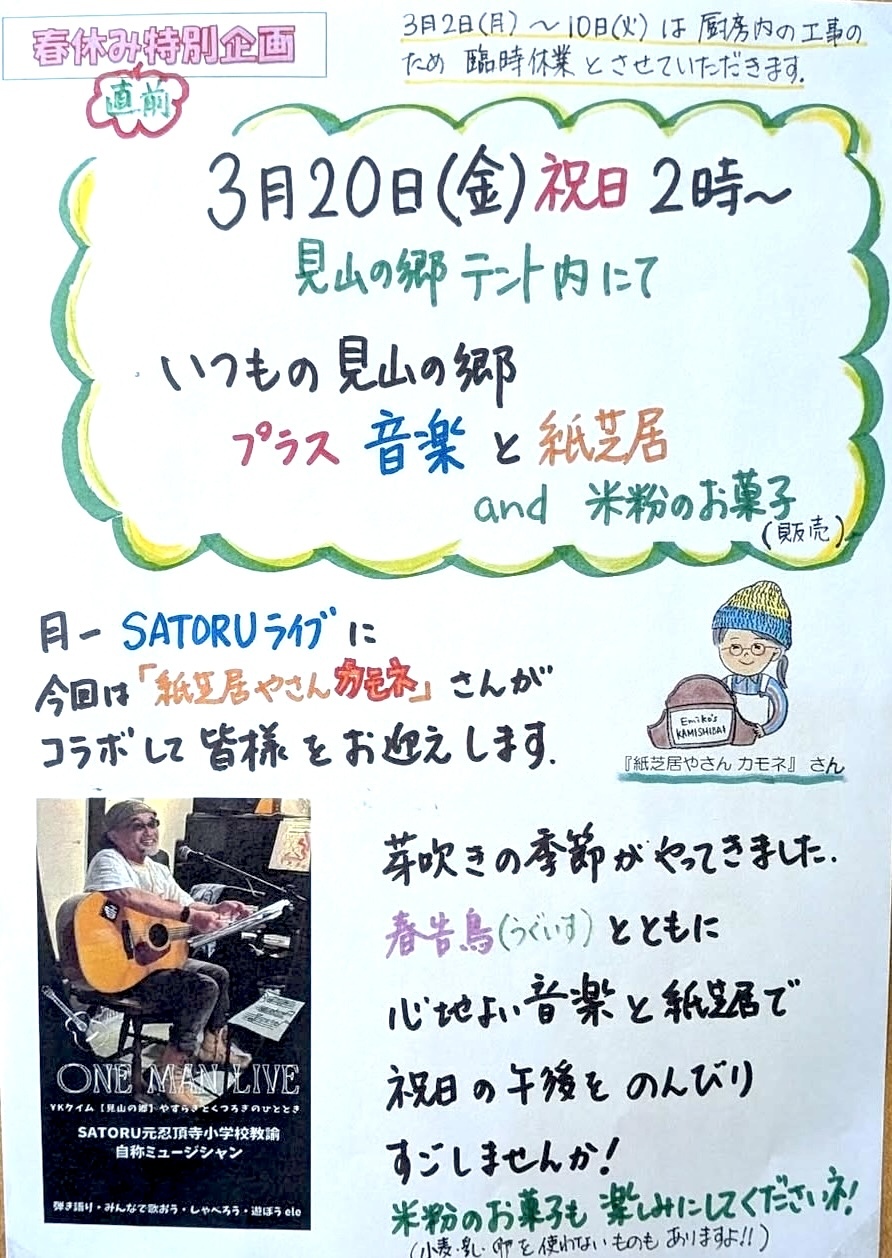 春休み特別企画
直前
3月2日(月)～10日(火)は厨房内の工事の
ため 臨時休業とさせていただきます。
3月20日(金)祝日 2時～
見山の郷 テント内にて
いつもの見山の郷
プラス 音楽と紙芝居
and 米粉のお菓子
(販売)
月一 SATORUライブに
今回は「紙芝居やさんカモネ」さんが
コラボして皆様をお迎えします.
Emiko's
KAMISHIBAI
『紙芝居やさん カモネ』 さん
芽吹きの季節がやってきました.
春告鳥(うぐいす)とともに
心地よい音楽と紙芝居で
祝日の午後をのんびり
すごしませんか!
米粉のお菓子も楽しみにしてくださいネ!
(小麦・乳・卵を使わないものもありますよ!!)
ONE MAN LIVE
YKタイム【見山の郷】やすらぎとくつろぎのひととき
SATORU元忍頂寺小学校教諭
自称ミュージシャン
弾き語り・みんなで歌おう・しゃべろう・遊ぼう etc